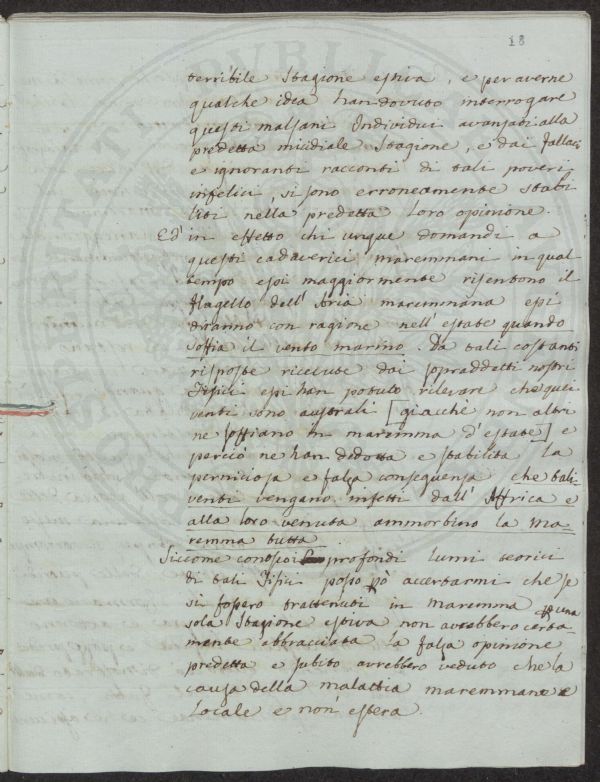 18
terribile Stagione estiva, e per averne
qualche idea han dovuto interrogare
questi malsani Individui avanzati alla
predetta micidiale Stagione, e dai fallaci
e ignoranti racconti di tali poveri
infelici, si sono erroneamente stabi
liti nella predetta loro opinione.
Ed in effetto chi unque domandi a
questi cadaverici maremmani in qual
tempo essi maggiormente risentono il
flagello dell'Aria maremmana essi
diranno con ragione nell'estate quando
soffia il vento marino. Da tali costanti
risposte ricevute dai sopraddetti nostri
Fisici essi han potuto rilevare che quei
venti sono australi [giacchè non altri
ne soffiano in maremma d'estate] e
perciò ne han dedotta e stabilita la
perniciosa e falsa conseguenza che tali
venti vengano infetti dall'Affrica e
alla loro venuta ammorbino la ma
remma tutta.
Siccome conosco i profondi lumi teorici
di tali Fisici posso però accertarmi che se
si fossero trattenuti in maremma una
sola Stagione estiva non avrebbero certa-
mente abbracciata la falsa opinione
predetta e subito avrebbero veduto che la
causa della malattia maremmana e
locale e non estera.
PUBLICA
PROSPERITATI